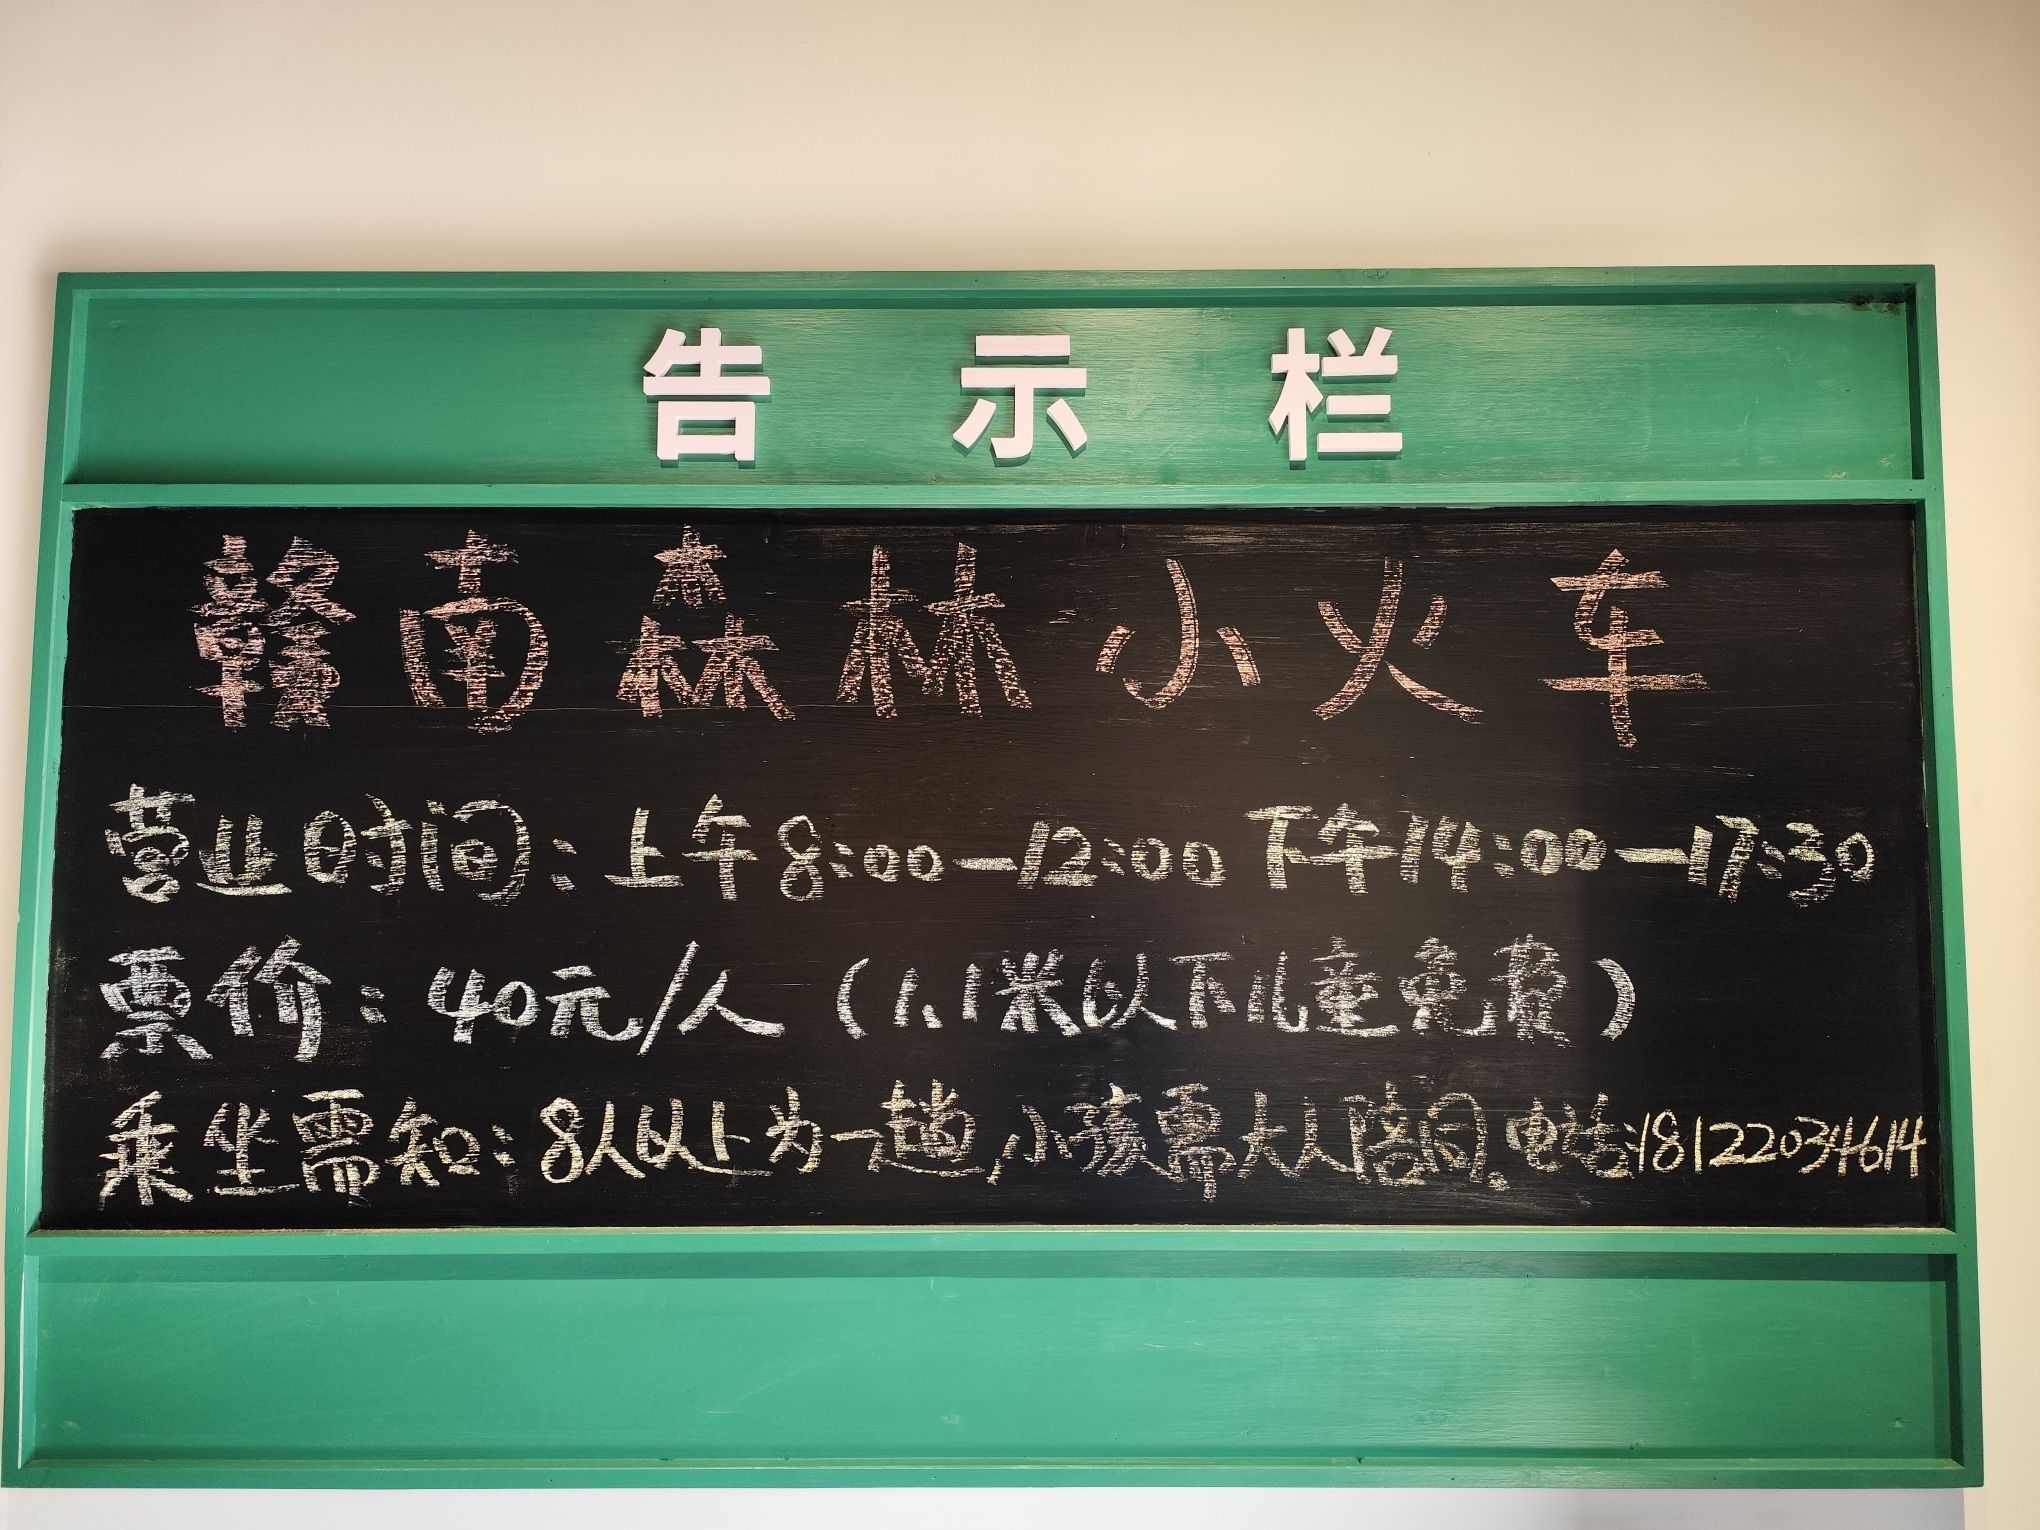 告示栏
赣南森林小火车
营业时间：上午8:00—12:00 下午14:00—17:30
票价：40元/人（1.1米以下儿童免费）
乘坐需知：8人以上为一趟，小孩需大人陪同。电话：18122034614